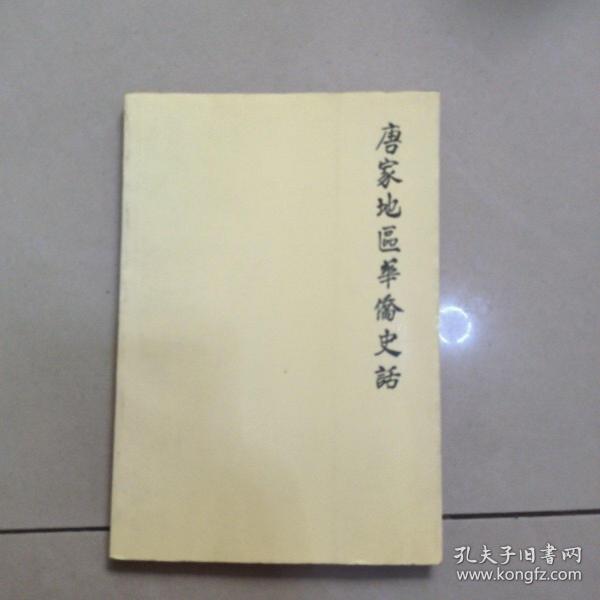 唐家地區華僑史話
孔夫子旧书网
www.kongfz.com